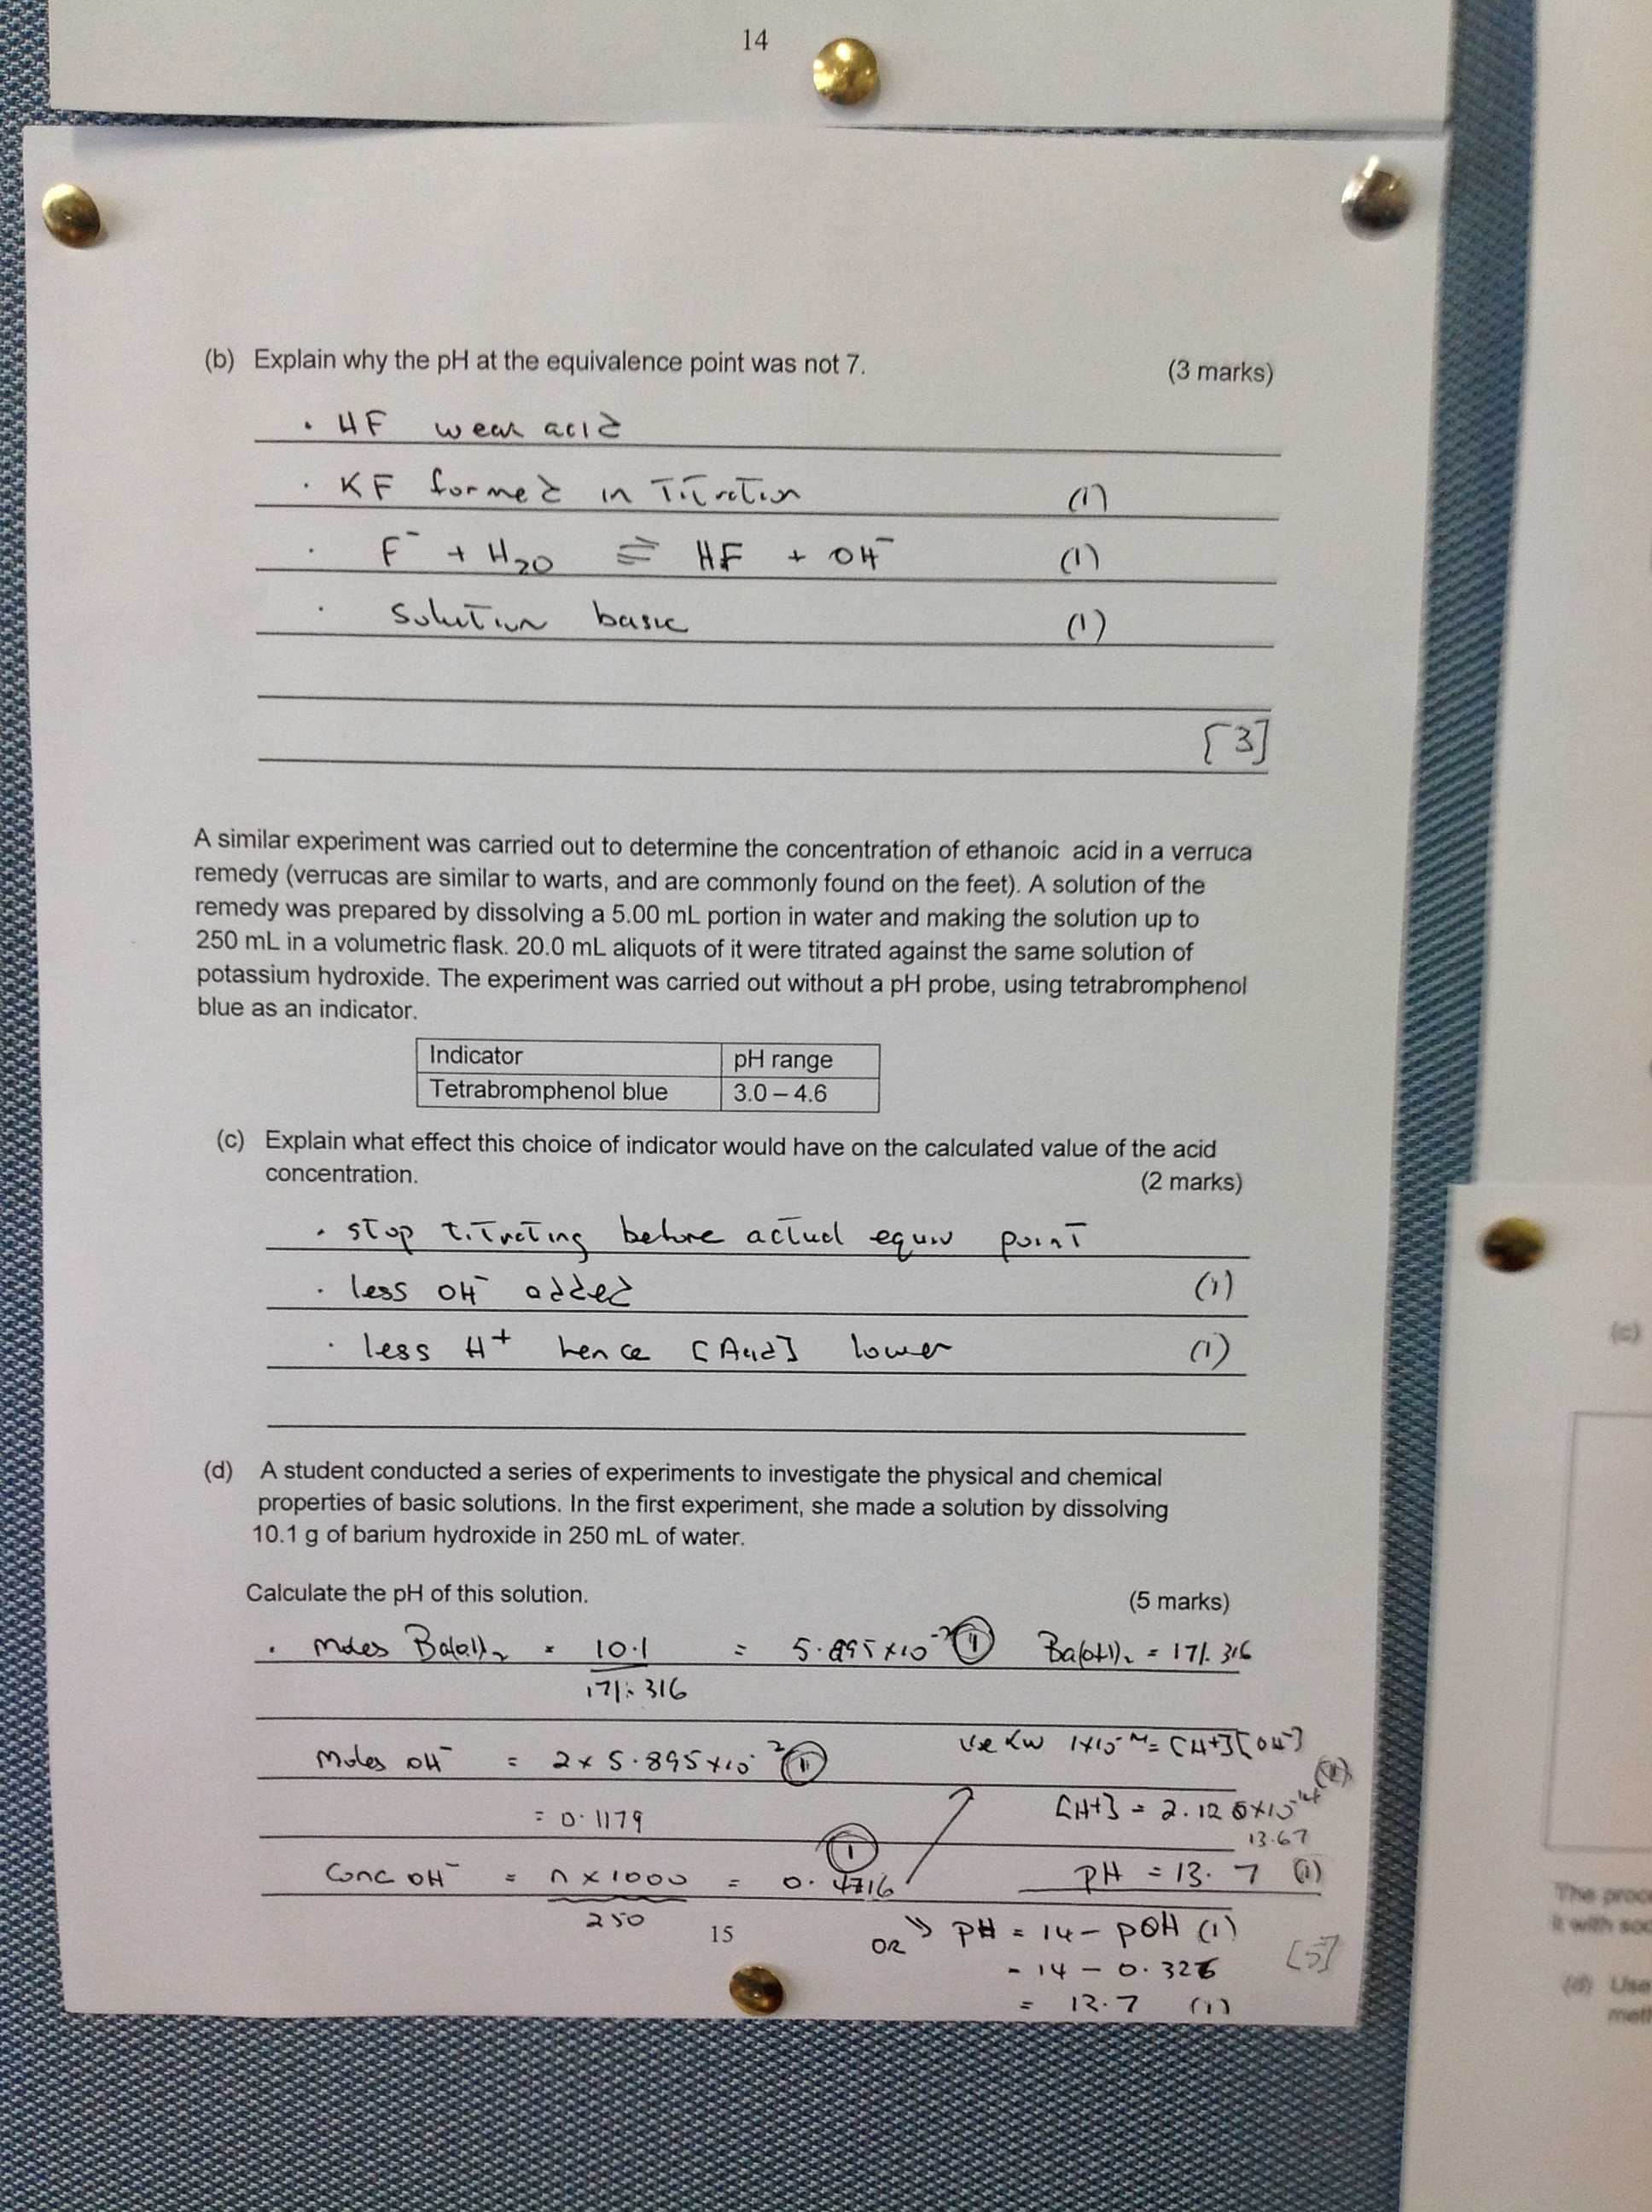 14
(b) Explain why the pH at the equivalence point was not 7.
(3 marks)
· HF weak acid
· KF formed in Titration (1)
· F⁻ + H₂O ⇌ HF + OH⁻ (1)
· Solution basic (1)
[3]
A similar experiment was carried out to determine the concentration of ethanoic acid in a verruca
remedy (verrucas are similar to warts, and are commonly found on the feet). A solution of the
remedy was prepared by dissolving a 5.00 mL portion in water and making the solution up to
250 mL in a volumetric flask. 20.0 mL aliquots of it were titrated against the same solution of
potassium hydroxide. The experiment was carried out without a pH probe, using tetrabromphenol
blue as an indicator.
Indicator pH range
Tetrabromphenol blue 3.0 – 4.6
(c) Explain what effect this choice of indicator would have on the calculated value of the acid
concentration. (2 marks)
· stop titrating before actual equiv point
· less OH⁻ added (1)
· less H⁺ hence [Acid] lower (1)
(d) A student conducted a series of experiments to investigate the physical and chemical
properties of basic solutions. In the first experiment, she made a solution by dissolving
10.1 g of barium hydroxide in 250 mL of water.
Calculate the pH of this solution. (5 marks)
· Moles Ba(OH)₂ = 10.1 = 5.895×10⁻² (1) Ba(OH)₂ = 171.316
171.316
Moles OH⁻ = 2 × 5.895×10⁻² (1)
= 0.1179
Conc OH⁻ = n × 1000 = 0.4716 (1)
250
Use Kw 1×10⁻¹⁴ = [H+][OH⁻]
(1)
[H+] = 2.120×10⁻¹⁴
13.67
pH = 13.7 (1)
OR pH = 14 – pOH (1)
= 14 – 0.326
= 13.7 (1)
[5]
15
(c)
The proc
it with soc
(d) Use
meth